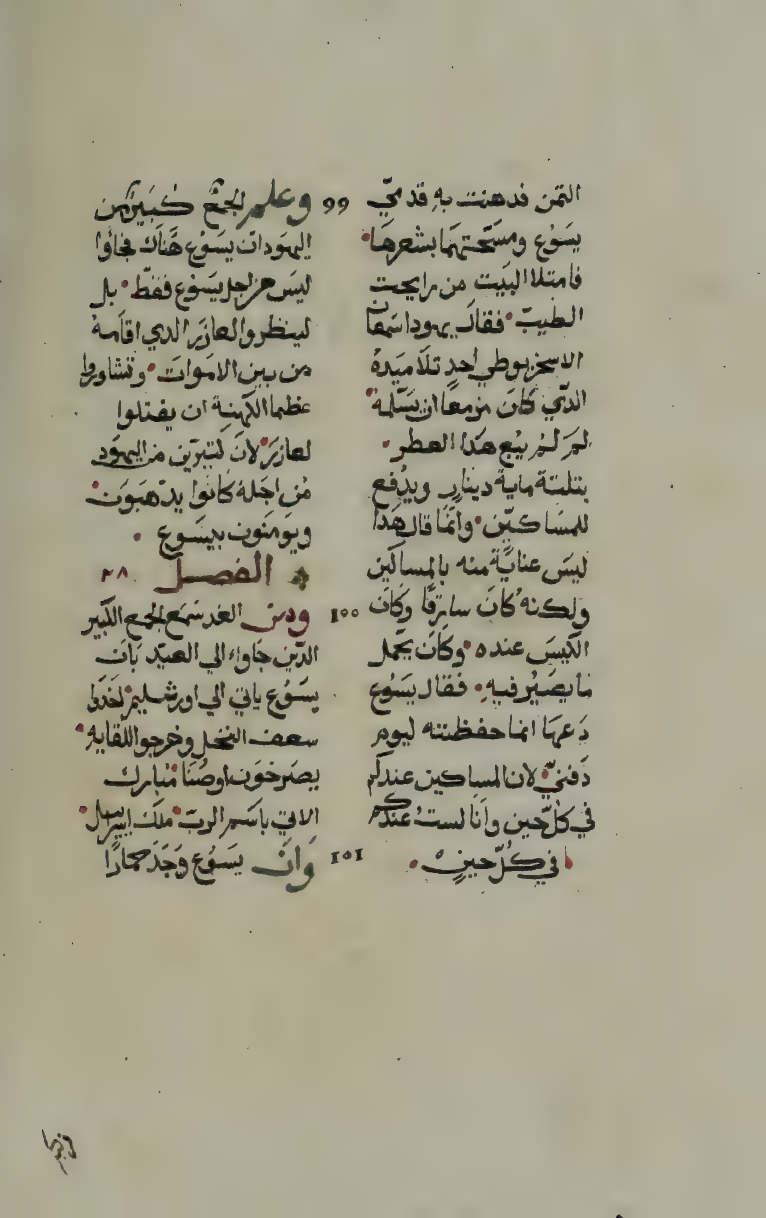 الثمن فدهنت به قدمي
يسوع ومسحتهما بشعرها
فامتلا البيت من رايحت
الطيب فقال يهودا سمعان
الاسخريوطي احد تلاميده
الدي كان مزمعا ان يسلمه
لم لم يبع هدا العطر
بتلتة ماية دينار ويدفع
للمساكين وانما قال هدا
ليس عناية منه بالمساكين
ولكنه كان سارقا وكان
الكيس عنده وكان يحمل
ما يصير فيه فقال يسوع
دعها انما حفظته ليوم
دفني لان المساكين عندكم
في كل حين وانا لست عندكم
في كل حين
99 وعلم الجمع كبير من
اليهود ان يسوع هناك فجاؤا
ليس من اجل يسوع فقط بل
لينظروا العازر الدي اقامه
من بين الاموات وتشاوروا
عظما الكهنة ان يقتلوا
لعازر لان كتيرين من اليهود
من اجله كانوا يدهبون
ويومنون بيسوع
الفصل ٢٨
100 ومن الغد سمع الجمع الكبير
الدين جاوا الي العيد بان
يسوع ياتي الي اورشليم اخدوا
سعف النخل وخرجوا للقايه
يصرخون اوصنا مبارك
الاتي باسم الرب ملك اسرايل
101 وان يسوع وجد حمارا